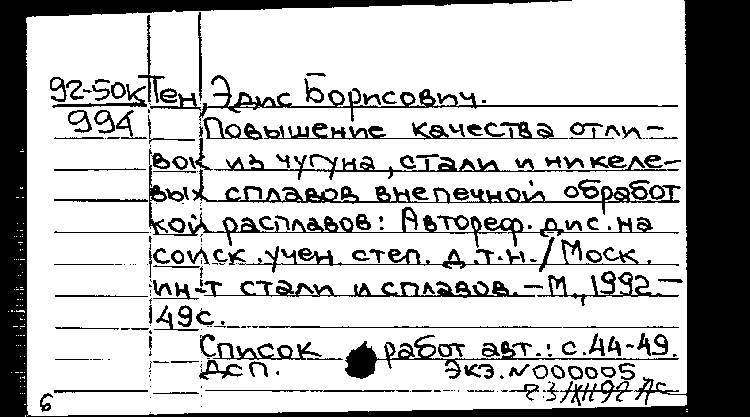 92-50К Тен, Эдис Борисович.
994 Повышение качества отли-
вок из чугуна, стали и никеле-
вых сплавов внепечной обработ
кой расплавов: Автореф. дис. на
соиск. учен. степ. д.т.н. / Моск.
ин-т стали и сплавов. - М., 1992. -
49с.
Список работ авт.: с. 44-49.
Дсп. Экз. N 000005
23/XII 92
6